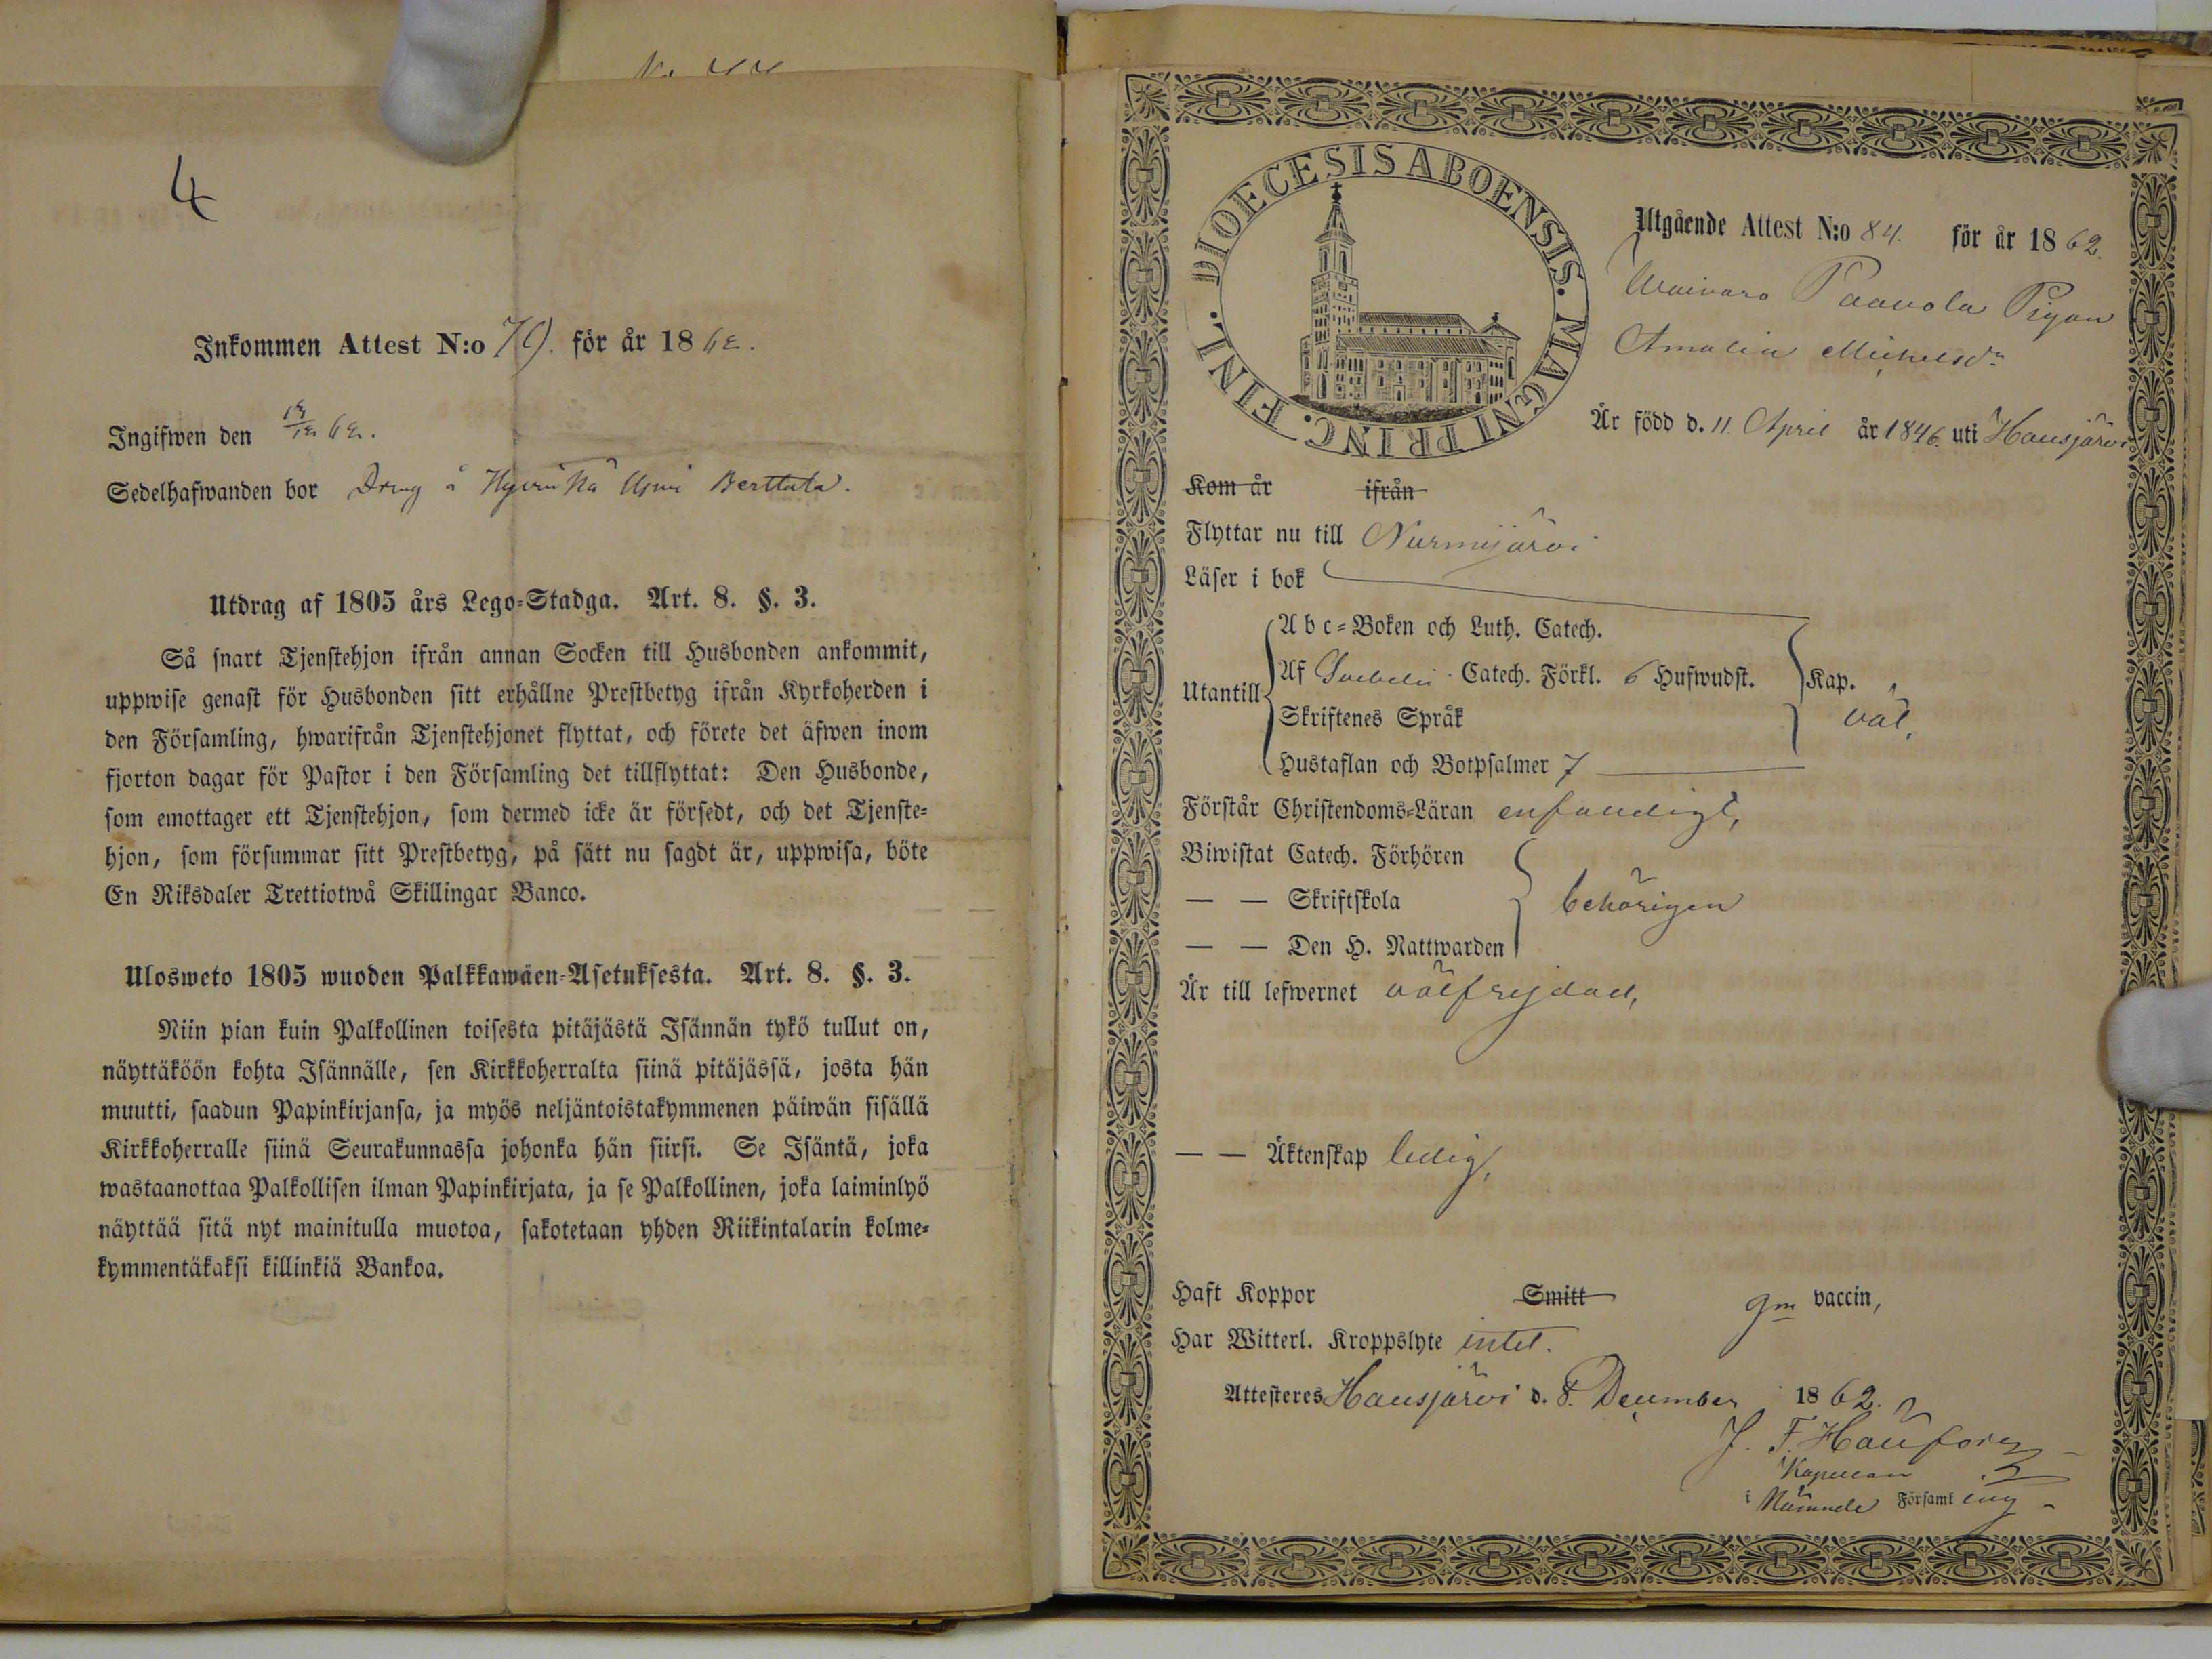 4
Inkommen Attest N:o 79. för år 1862.
Ingifwen den 62.
Sedelhafwanden bor Dreng å Hyvinkä Ujwi Berttula.
Utdrag af 1805 års Lego-Stadga. Art. 8. §. 3.
Så snart Tjenstehjon ifrån annan Socken till Husbonden ankommit,
uppwise genast för Husbonden sitt erhållne Prestbetyg ifrån Kyrkoherden i
den Församling, hwarifrån Tjenstehjonet flyttat, och förete det äfwen inom
fjorton dagar för Pastor i den Församling det tillflyttat: Den Husbonde,
som emottager ett Tjenstehjon, som dermed icke är försedt, och det Tjenste-
hjon, som försummar sitt Prestbetyg, på sätt nu sagdt är, uppwisa, böte
En Riksdaler Trettiotwå Skillingar Banco.
Ulosweto 1805 wuoden Palkkawäen-Asetuksesta. Art. 8. §. 3.
Niin pian kuin Palkollinen toisesta pitäjästä Isännän tykö tullut on,
näyttäköön kohta Isännälle, sen Kirkkoherralta siinä pitäjässä, josta hän
muutti, saadun Papinkirjansa, ja myös neljäntoistakymmenen päiwän sisällä
Kirkkoherralle siinä Seurakunnassa johonka hän siirsi. Se Isäntä, joka
wastaanottaa Palkollisen ilman Papinkirjata, ja se Palkollinen, joka laiminlyö
näyttää sitä nyt mainitulla muotoa, sakotetaan yhden Riikintalarin kolme-
kymmentäkaksi killinkiä Bankoa.
DIOECESIS ABOENSIS. MAGNI PRINC. FINL.
Utgående Attest N:o 84. för år 1862.
Paavola Pigan
Amalia Michelsdr
Är född d. 11 April år 1846. uti Hausjärvi
Kom år ifrån
Flyttar nu till Nurmijärvi
Läser i bok
Abc-Boken och Luth. Catech.
Utantill Af Svebelii Catech. Förkl. 6 Hufwudst. Kap.
Skriftenes Språk väl,
Hustaflan och Botpsalmer 7
Förstår Christendoms-Läran enfaldigt,
Biwistat Catech. Förhören
— — Skriftskola behörigen
— — Den H. Nattwarden
Är till lefwernet välfrejdad,
— — Äktenskap ledig,
Haft Koppor Smitt gm vaccin,
Har Witterl. Kroppslyte intet.
Attesteres Hausjärvi d. 8. December 1862.
J. F. Häufors
Kapellan
i Nämnde Församling